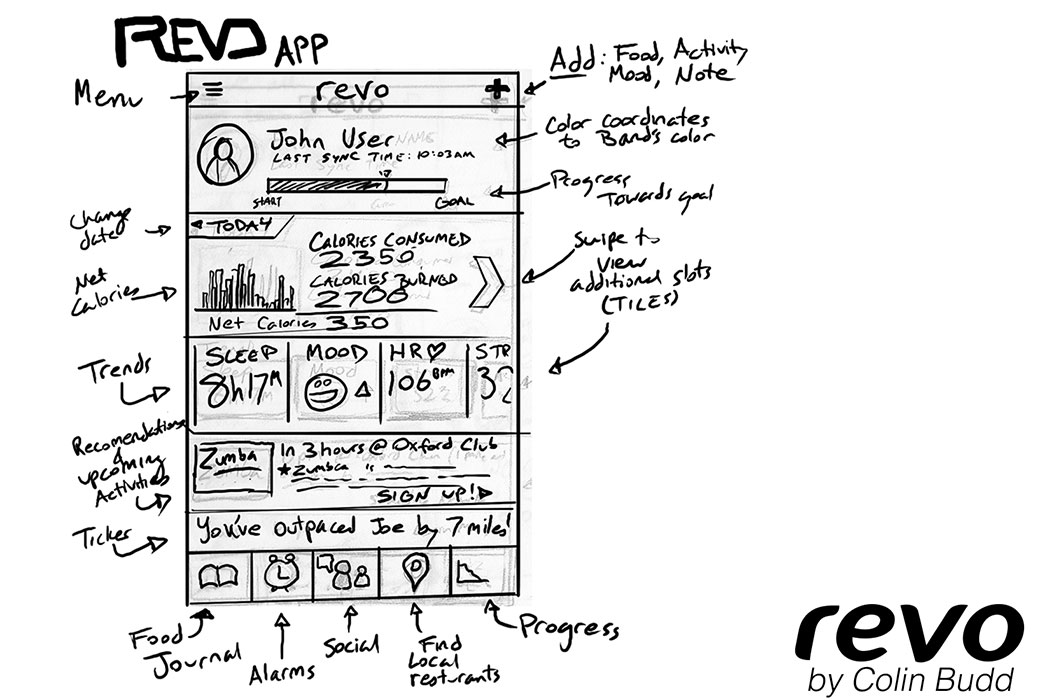 REVO APP
Menu
revo
Add: Food, Activity
Mood, Note
John User
LAST SYNC TIME: 10:03AM
START
GOAL
Color coordinates
to Band's color
Progress
Towards goal
Change
date
TODAY
CALORIES CONSUMED
2350
CALORIES BURNED
2700
Net Calories 350
Net
Calories
Swipe to
View
additional slots
(TILES)
Trends
SLEEP
8h17M
MOOD
HR
106 BPM
STR
32
Recomendations
&
upcoming
Activities
Zumba
In 3 hours @ Oxford Club
Zumba is
SIGN UP!
Ticker
You've outpaced Joe by 7 miles!
Food
Journal
Alarms
Social
Find
Local
resturants
Progress
revo
by Colin Budd